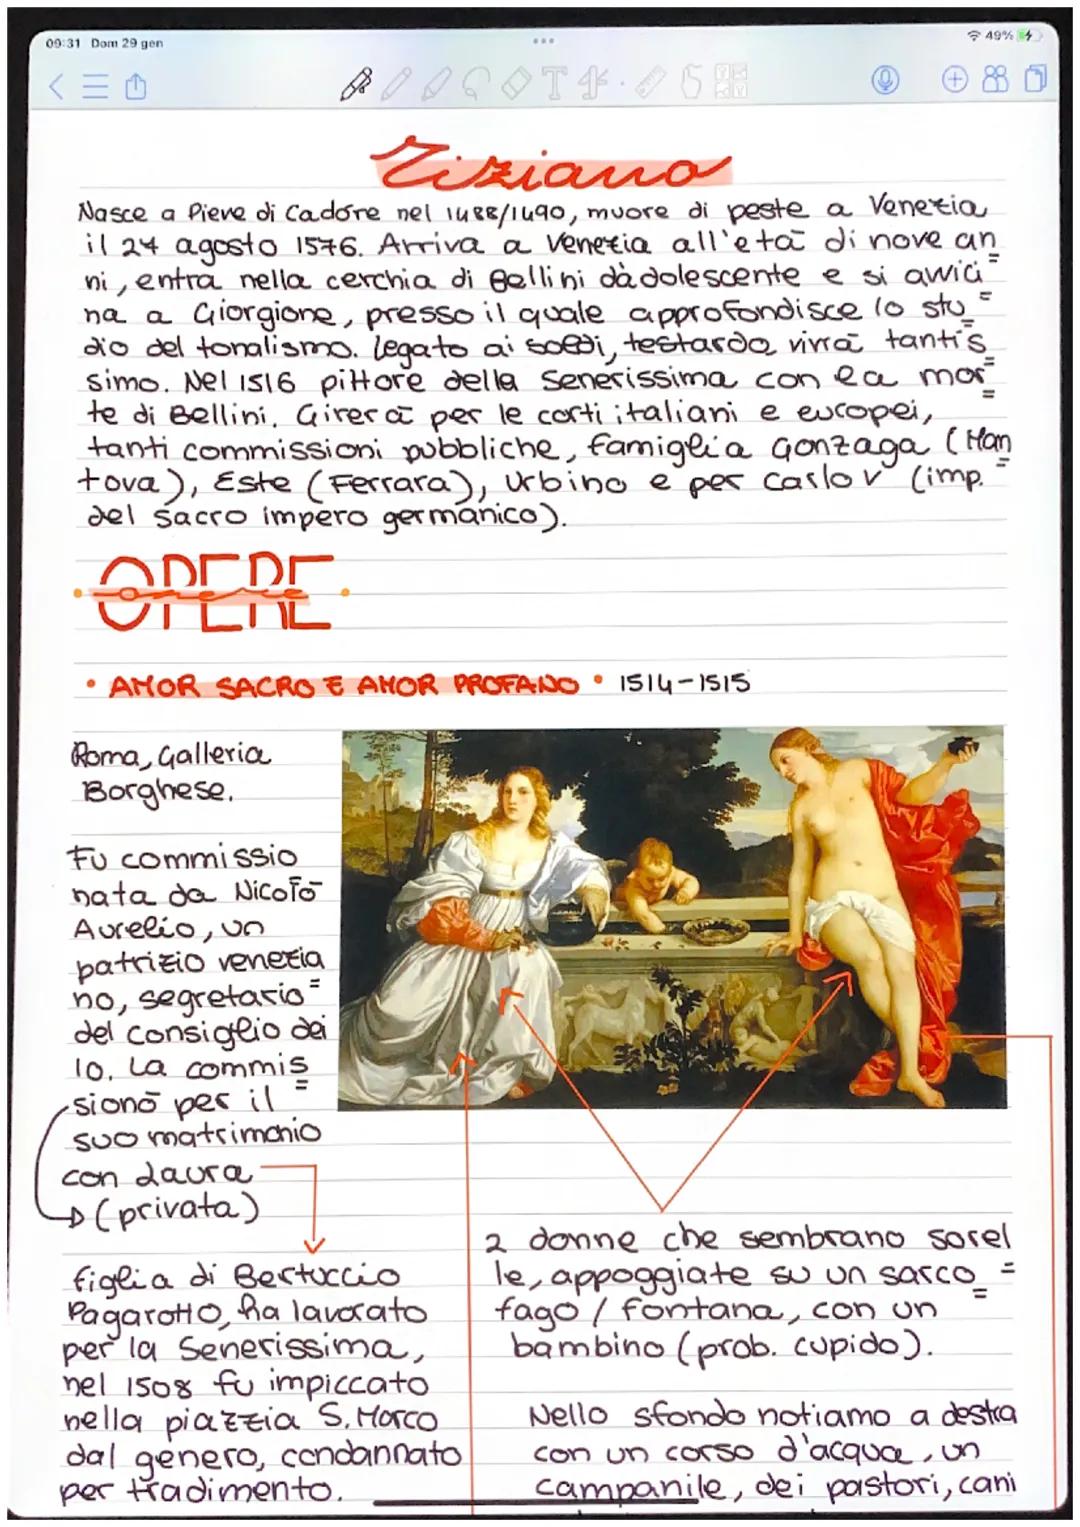 09:31 Dom 29 gen
49%
Tiziano
Nasce a Pieve di Cadore nel 1488/1490, muore di peste a Venezia
il 24 agosto 1576. Arriva a Venezia all'età di nove an
ni, entra nella cerchia di Bellini dàdolescente e si avvici=
na a Giorgione, presso il quale approfondisce lo stu=
dio del tonalismo. Legato ai soldi, testardo, vivrà tantis=
simo. Nel 1516 pittore della Senerissima con la mor=
te di Bellini. Girerà per le corti italiani e europei,
tanti commissioni pubbliche, famiglia Gonzaga (Man=
tova), Este (Ferrara), Urbino e per Carlo V (imp.
del sacro impero germanico).
OPERE
opere
• AMOR SACRO E AMOR PROFANO • 1514-1515
Roma, Galleria
Borghese.
Fu commissio
nata da Nicolò
Aurelio, un
patrizio venezia=
no, segretario
del consiglio dei
10. La commis=
sionò per il
suo matrimonio
con Laura
(privata)
figlia di Bertuccio
Pagarotto, ha lavorato
per la Senerissima,
nel 1508 fu impiccato
nella piazzia S. Marco
dal genero, condannato
per tradimento.
2 donne che sembrano sorel=
le, appoggiate su un sarco=
fago / fontana, con un
bambino (prob. cupido).
Nello sfondo notiamo a destra
con un corso d'acqua, un
campanile, dei pastori, cani